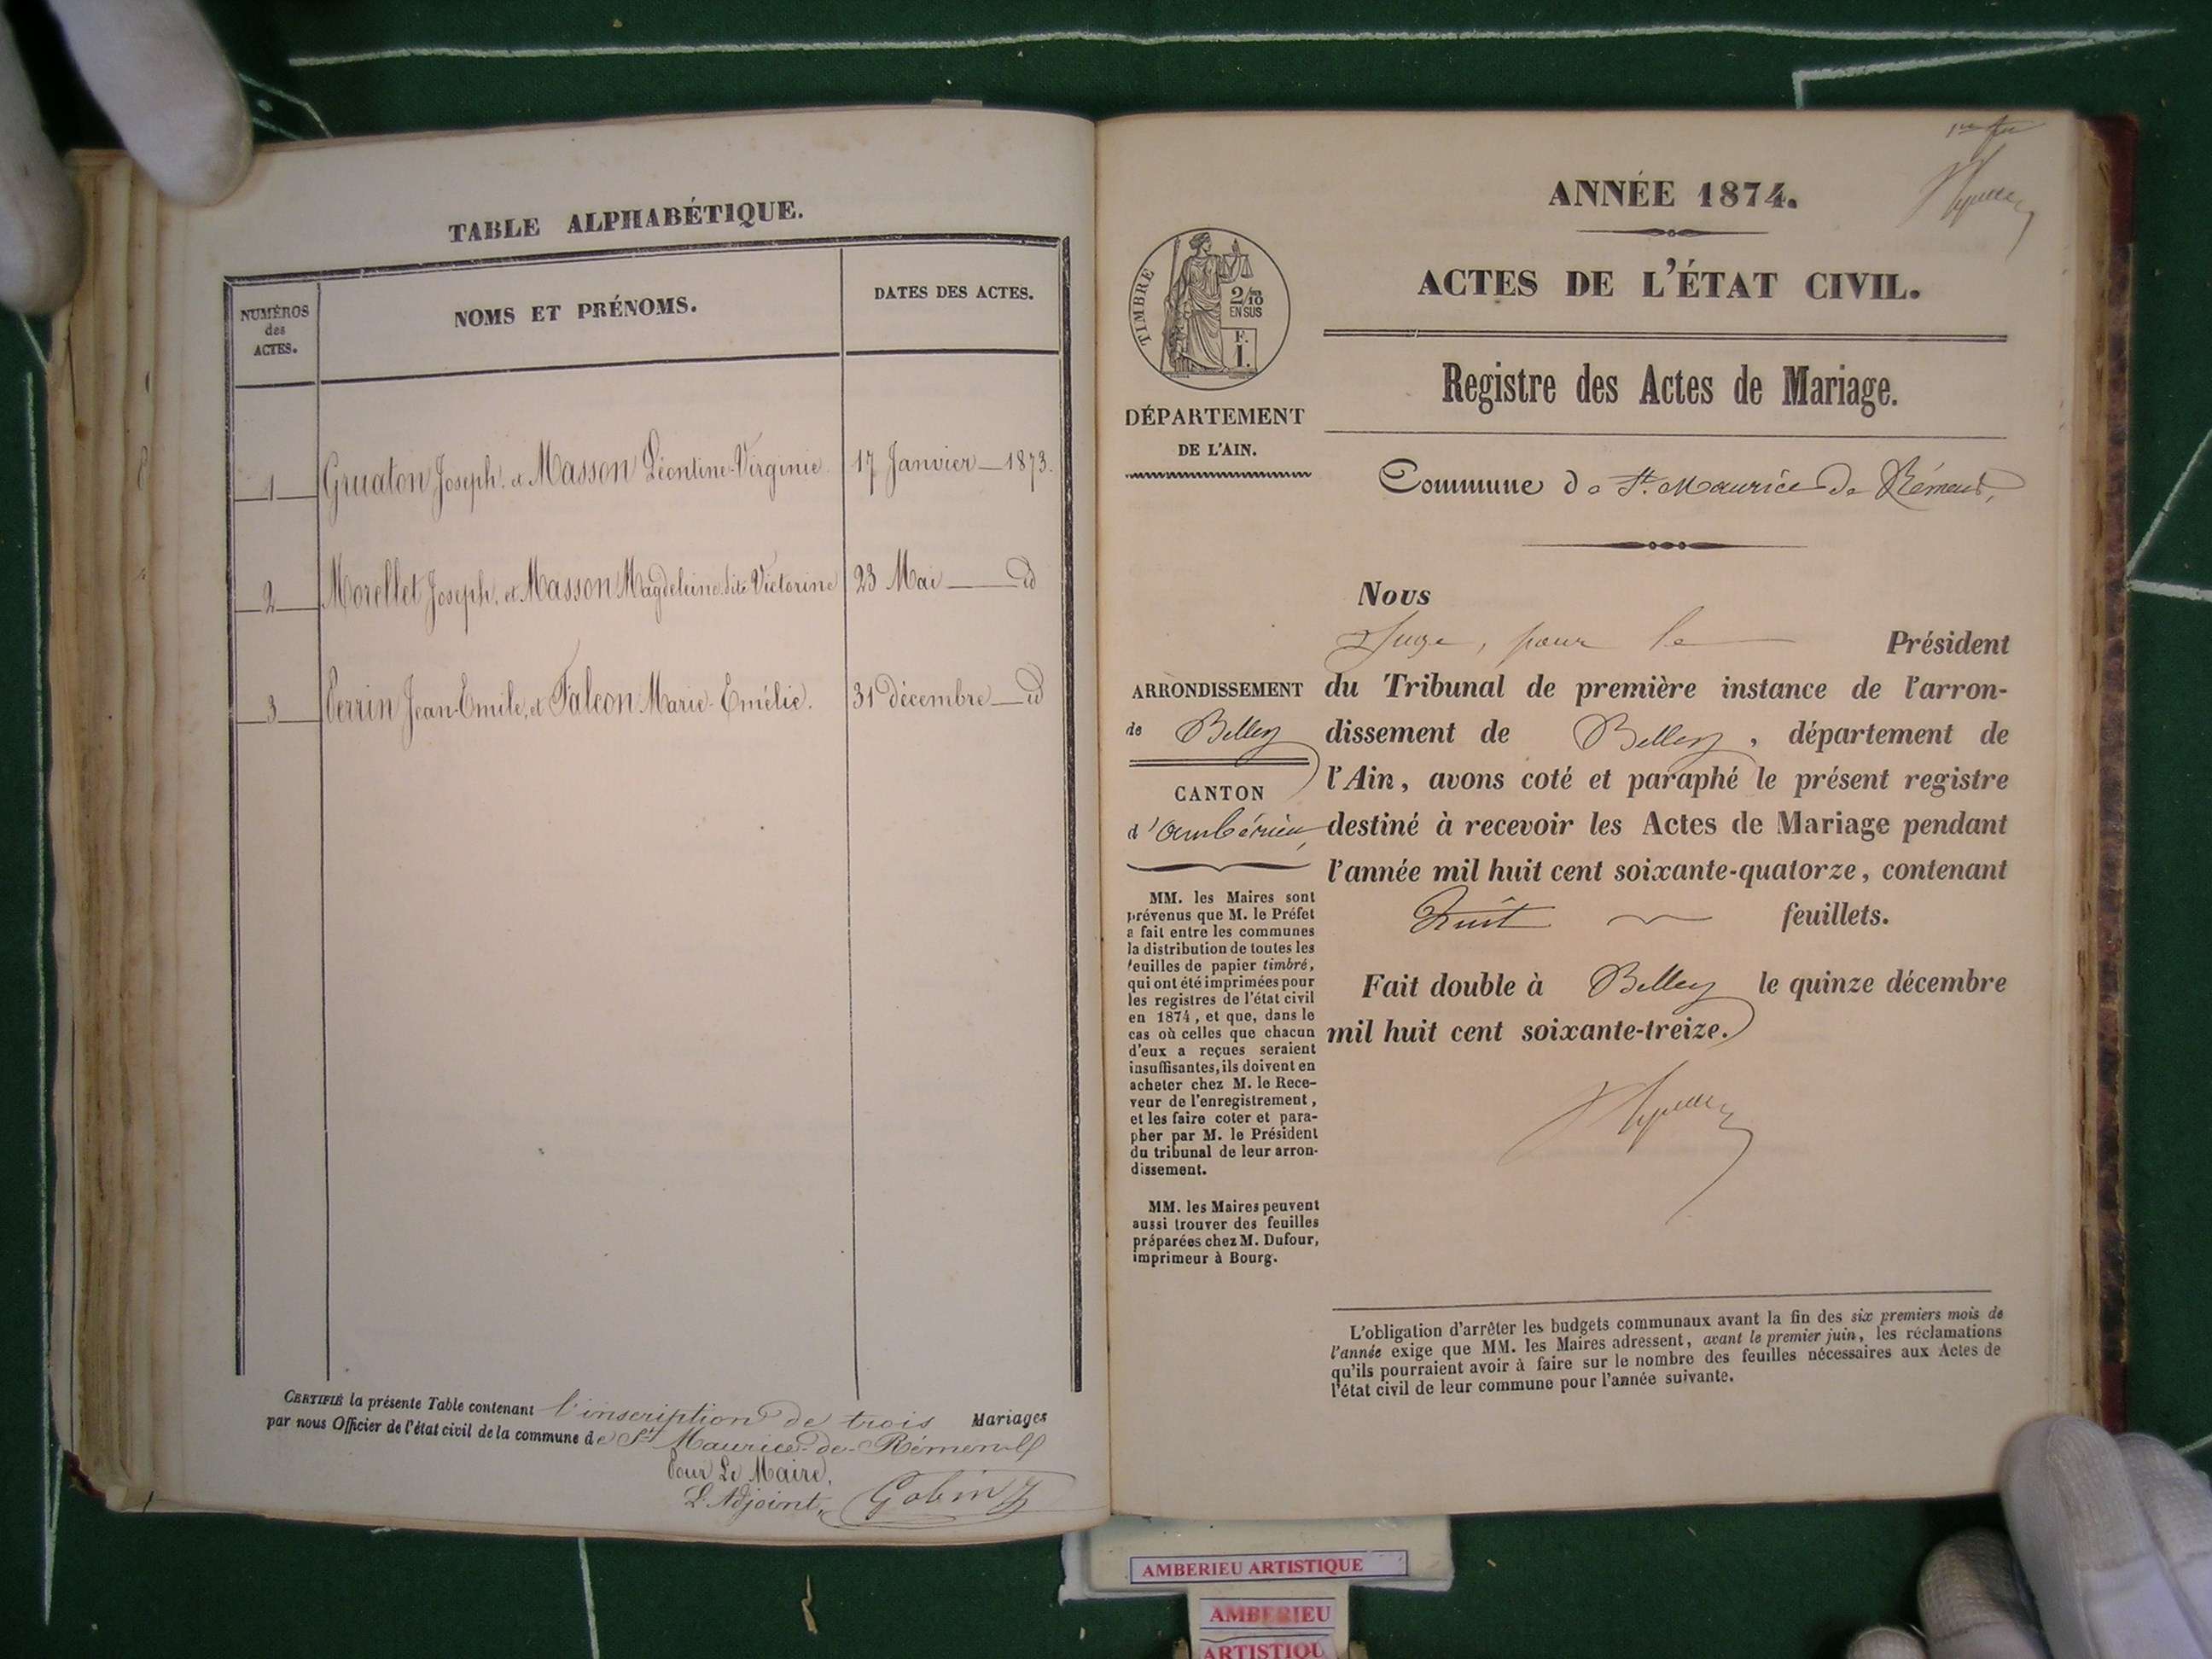 TABLE ALPHABÉTIQUE.
NUMÉROS
des
ACTES.
NOMS ET PRÉNOMS.
DATES DES ACTES.
1 Gruaton Joseph, et Masson Léontine-Virginie. 17 Janvier — 1873.
2 Morellet Joseph, et Masson Magdeleine dite Victorine 23 Mai — id
3 Perrin Jean-Emile, et Falcon Marie-Emélie. 31 décembre — id
CERTIFIÉ la présente Table contenant l'inscription de trois Mariages
par nous Officier de l'état civil de la commune de St Maurice-de-Rémens
Pour Le Maire,
L'Adjoint, Gobin
ANNÉE 1874.
ACTES DE L'ÉTAT CIVIL.
TIMBRE
2/10
EN SUS
F.
1.
DÉPARTEMENT
DE L'AIN.
Registre des Actes de Mariage.
Commune de St. Maurice de Rémens,
ARRONDISSEMENT
de Belley
CANTON
d'Ambérieu,
MM. les Maires sont
prévenus que M. le Préfet
a fait entre les communes
la distribution de toutes les
feuilles de papier timbré,
qui ont été imprimées pour
les registres de l'état civil
en 1874, et que, dans le
cas où celles que chacun
d'eux a reçues seraient
insuffisantes, ils doivent en
acheter chez M. le Rece-
veur de l'enregistrement,
et les faire coter et para-
pher par M. le Président
du tribunal de leur arron-
dissement.
MM. les Maires peuvent
aussi trouver des feuilles
préparées chez M. Dufour,
imprimeur à Bourg.
Nous
Juge, pour le Président
du Tribunal de première instance de l'arron-
dissement de Belley, département de
l'Ain, avons coté et paraphé le présent registre
destiné à recevoir les Actes de Mariage pendant
l'année mil huit cent soixante-quatorze, contenant
huit feuillets.
Fait double à Belley le quinze décembre
mil huit cent soixante-treize.
L'obligation d'arrêter les budgets communaux avant la fin des six premiers mois de
l'année exige que MM. les Maires adressent, avant le premier juin, les réclamations
qu'ils pourraient avoir à faire sur le nombre des feuilles nécessaires aux Actes de
l'état civil de leur commune pour l'année suivante.
AMBERIEU ARTISTIQUE
AMBERIEU
ARTISTIQU